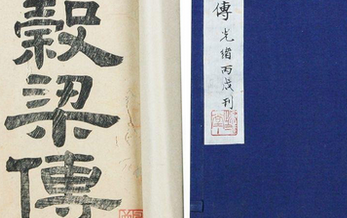 穀梁傳
傳 光緒丙戌刊